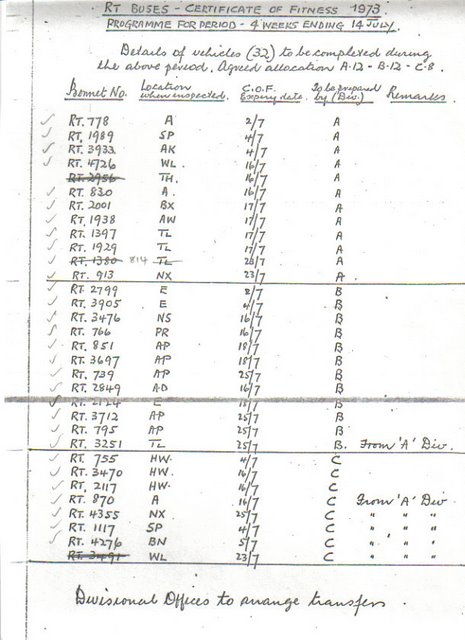 RT BUSES - CERTIFICATE OF FITNESS 1973
PROGRAMME FOR PERIOD - 4 WEEKS ENDING 14 JULY.
Details of vehicles (32) to be completed during
the above period. Agreed allocation A-12 - B-12 - C-8.
Bonnet No. Location when inspected. C.O.F. Expiry date. To be prepared by (Div.) Remarks.
RT. 778 A 2/7 A
RT. 1989 SP 4/7 A
RT. 3933 AK 4/7 A
RT. 4726 WL. 16/7 A
RT. 2956 TH. 16/7 A
RT. 830 A. 16/7 A
RT. 2001 BX 17/7 A
RT. 1938 AW 17/7 A
RT. 1397 TL 17/7 A
RT. 1929 TL 17/7 A
RT. 1380 814 TL 23/7 A
RT. 913 NX 23/7 A
RT. 2799 E 2/7 B
RT. 3905 E 4/7 B
RT. 3476 NS 16/7 B
RT. 766 PR 16/7 B
RT. 851 AP 18/7 B
RT. 3697 AP 18/7 B
RT. 739 AP 25/7 B
RT. 2849 AD 16/7 B
RT. 2124 E 18/7 B
RT. 3712 AP 25/7 B
RT. 795 AP 25/7 B
RT. 3251 TL 25/7 B. From 'A' Div.
RT. 755 HW. 4/7 C
RT. 3470 HW. 16/7 C
RT. 2117 HW. 16/7 C
RT. 870 A 16/7 C From 'A' Div
RT. 4355 NX 25/7 C " " "
RT. 1117 SP 4/7 C " " "
RT. 4276 BN 5/7 C " " "
RT. 3491 WL 23/7 C " " "
Divisional Offices to arrange transfers